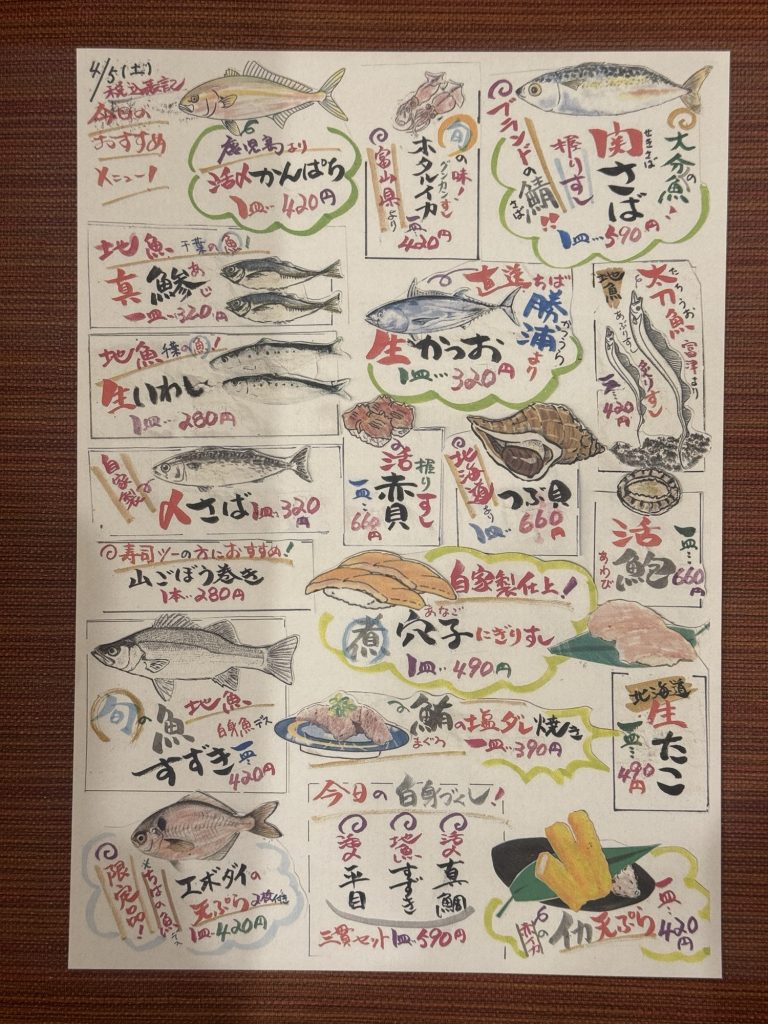 4/5(土)
税込表記
今日の
おすすめ
メニュー!
鹿児島より
活〆かんぱち
1皿…420円
旬の味!
グンカンすし
ホタルイカ
富山県より
一皿…420円
大分の魚!
せきさば
関さば
握りすし
ブランドの鯖!!
さば
1皿…590円
地魚 千葉の魚!
真鯵
あじ
一皿…320円
直送 ちば
勝浦より
かつうら
生かつお
1皿…320円
地魚
たちうお
太刀魚
富津より
あぶりすし
炙りすし
一皿…420円
地魚 千葉の魚!
生いわし
1皿…280円
自家製
〆さば 1皿…320円
握りすし
活赤貝
一皿…660円
北海道より
つぶ貝
1皿…660円
活鮑
あわび
一皿…660円
寿司ツーの方におすすめ!
山ごぼう巻き
1本…280円
自家製仕上!
あなご
煮穴子にぎりすし
1皿…490円
旬の魚
地魚
白身魚デス
すずき
一皿…420円
鮪の塩ダレ焼き
まぐろ
一皿…390円
北海道
生たこ
一皿…490円
限定品!
※ちばの魚デス
エボダイの
天ぷら 2枚付
1皿…420円
今日の白身づくし!
活〆真鯛
地魚すずき
活〆平目
三貫セット1皿…590円
イカ天ぷら
一皿…420円